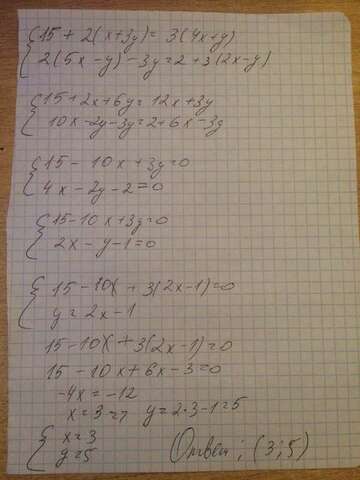 { 15 + 2(x+3y) = 3(4x+y)
2(5x-y) - 3y = 2 + 3(2x-y)
{ 15 + 2x + 6y = 12x + 3y
10x - 2y - 3y = 2 + 6x - 3y
{ 15 - 10x + 3y = 0
4x - 2y - 2 = 0
{ 15 - 10x + 3y = 0
2x - y - 1 = 0
{ 15 - 10x + 3(2x-1) = 0
y = 2x - 1
15 - 10x + 3(2x-1) = 0
15 - 10x + 6x - 3 = 0
-4x = -12
x = 3 => y = 2·3-1 = 5
{ x = 3
y = 5 Ответ: (3; 5)